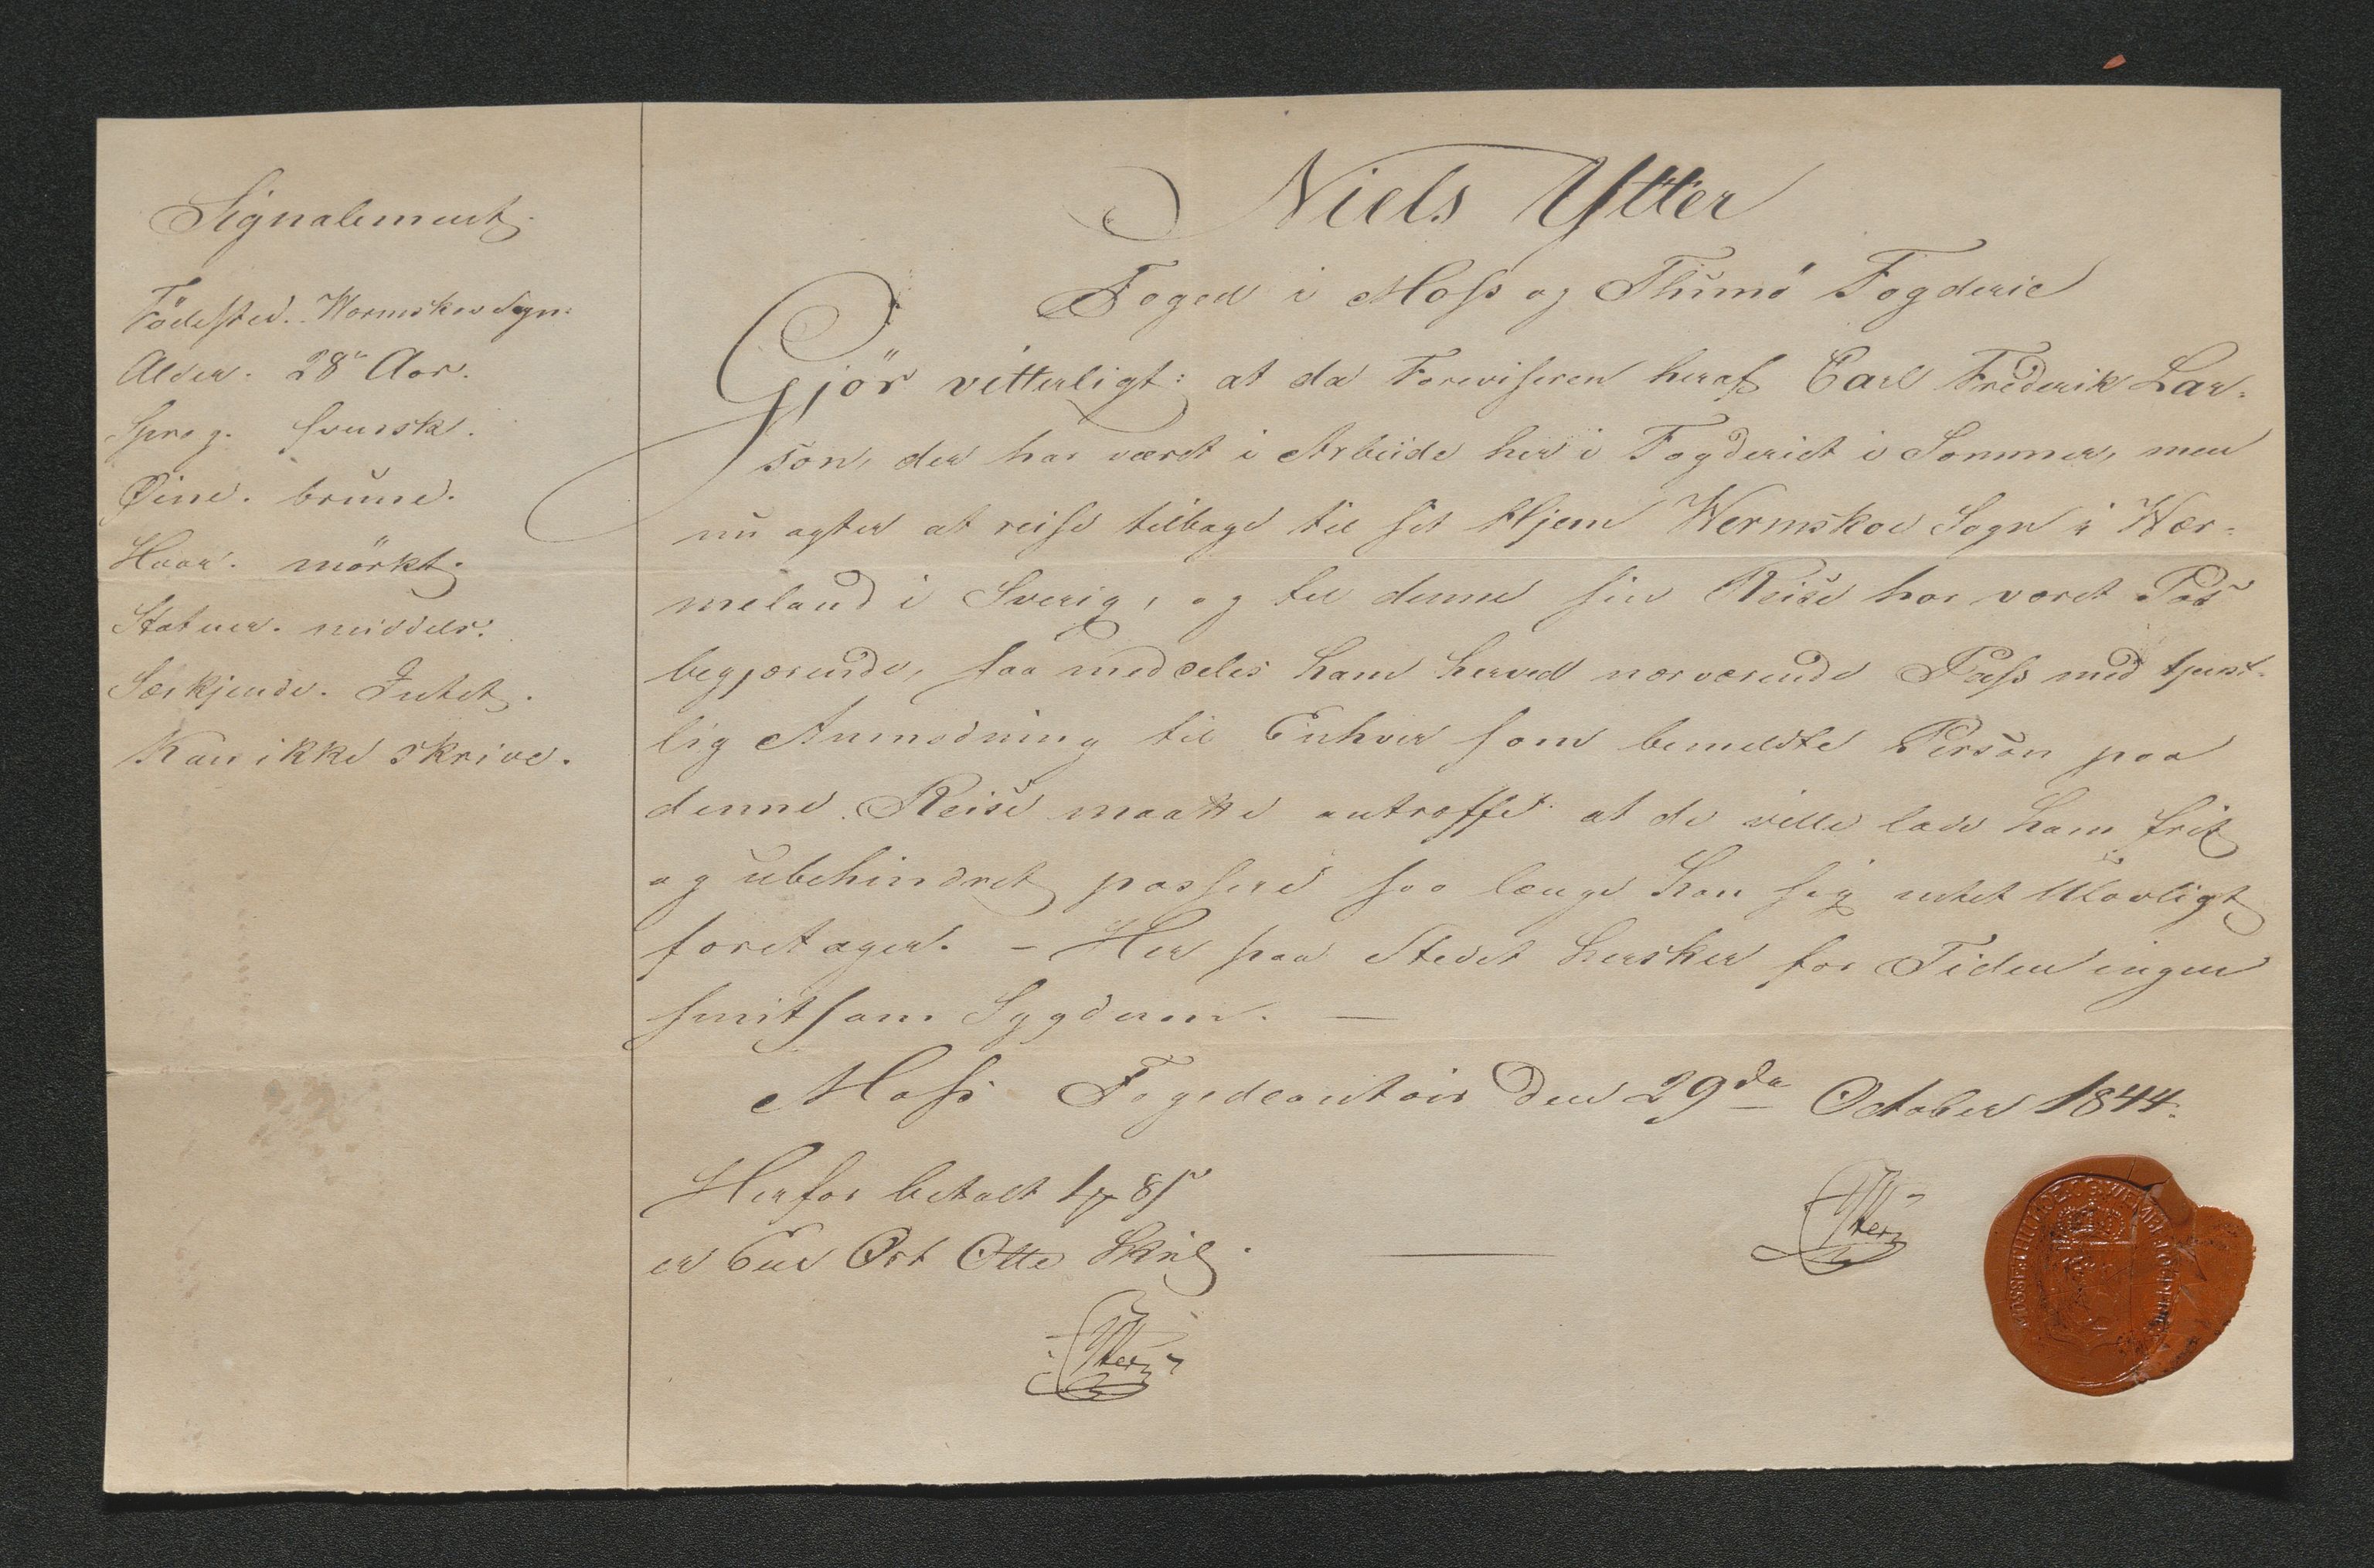 Signalement.
Födested. Wermskov Sogn:
Alder. 28 Aar.
Sprog. svensk.
Öine. brune.
Haar. mörkt.
Statuer. middels.
Særkjende. Intet.
Kan ikke skrive.
Niels Ytter
Foged i Moss og Thumö Fogderie
Gjör vitterligt: at da Foreviseren heraf Carl Frederik Lar-
son, der har været i Arbeide her i Fogderiet i Sommer, men
nu agter at reise tilbage til sit Hjem Wermskov Sogn i Wer-
meland i Sverig, og til denne sin Reise har været Pas
begjærende, saa meddeles ham herved nærværende Pass med tjenst-
lig Anmodning til Enhver som bemeldte Person paa
denne Reise maatte antræffe at de ville lade ham frit
og ubehindret passere saa længe han sig intet Ulovligt
foretager. - Her paa Stedet hersker for Tiden ingen
smitsom Sygdom. —
Moss Fogedcontoir den 29de October 1844.
Herfor betalt 1 8
er Een Ort Otte Skill.
Ytter
Ytter